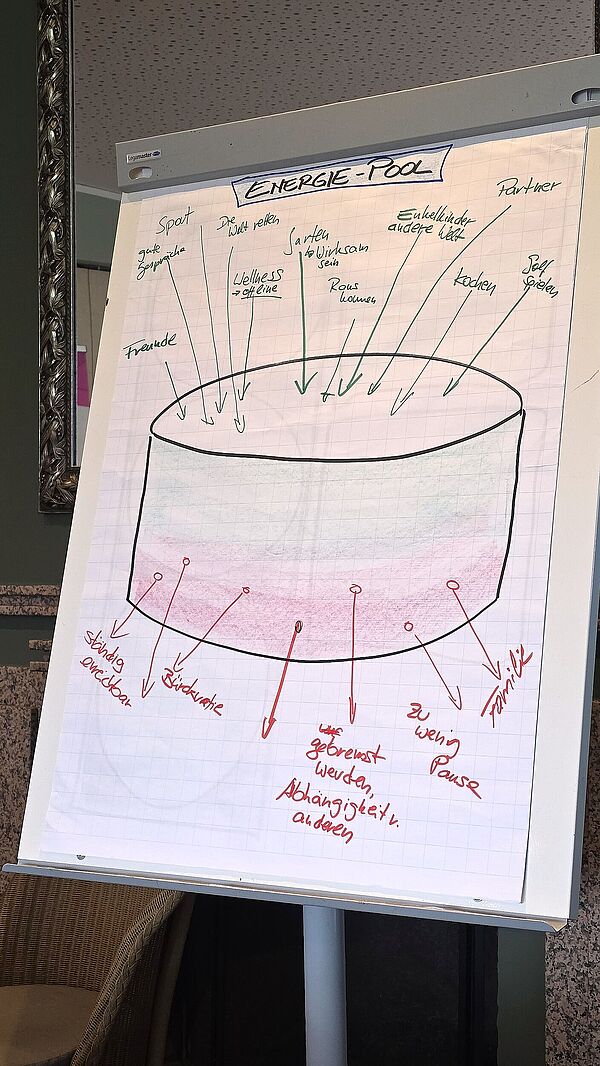 legamaster
ENERGIE-POOL
Partner
Sport
Die
Welt retten
Enkelkinder
andere Welt
gute
Gespräche
Garten
↳ Wirksam
sein
Wellness
→ offline
Raus
kommen
Kochen
Golf
spielen
Freunde
ständig
erreichbar
Bürokratie
gebremst
werden,
Abhängigkeit v.
anderen
Zu
wenig
Pause
Familie